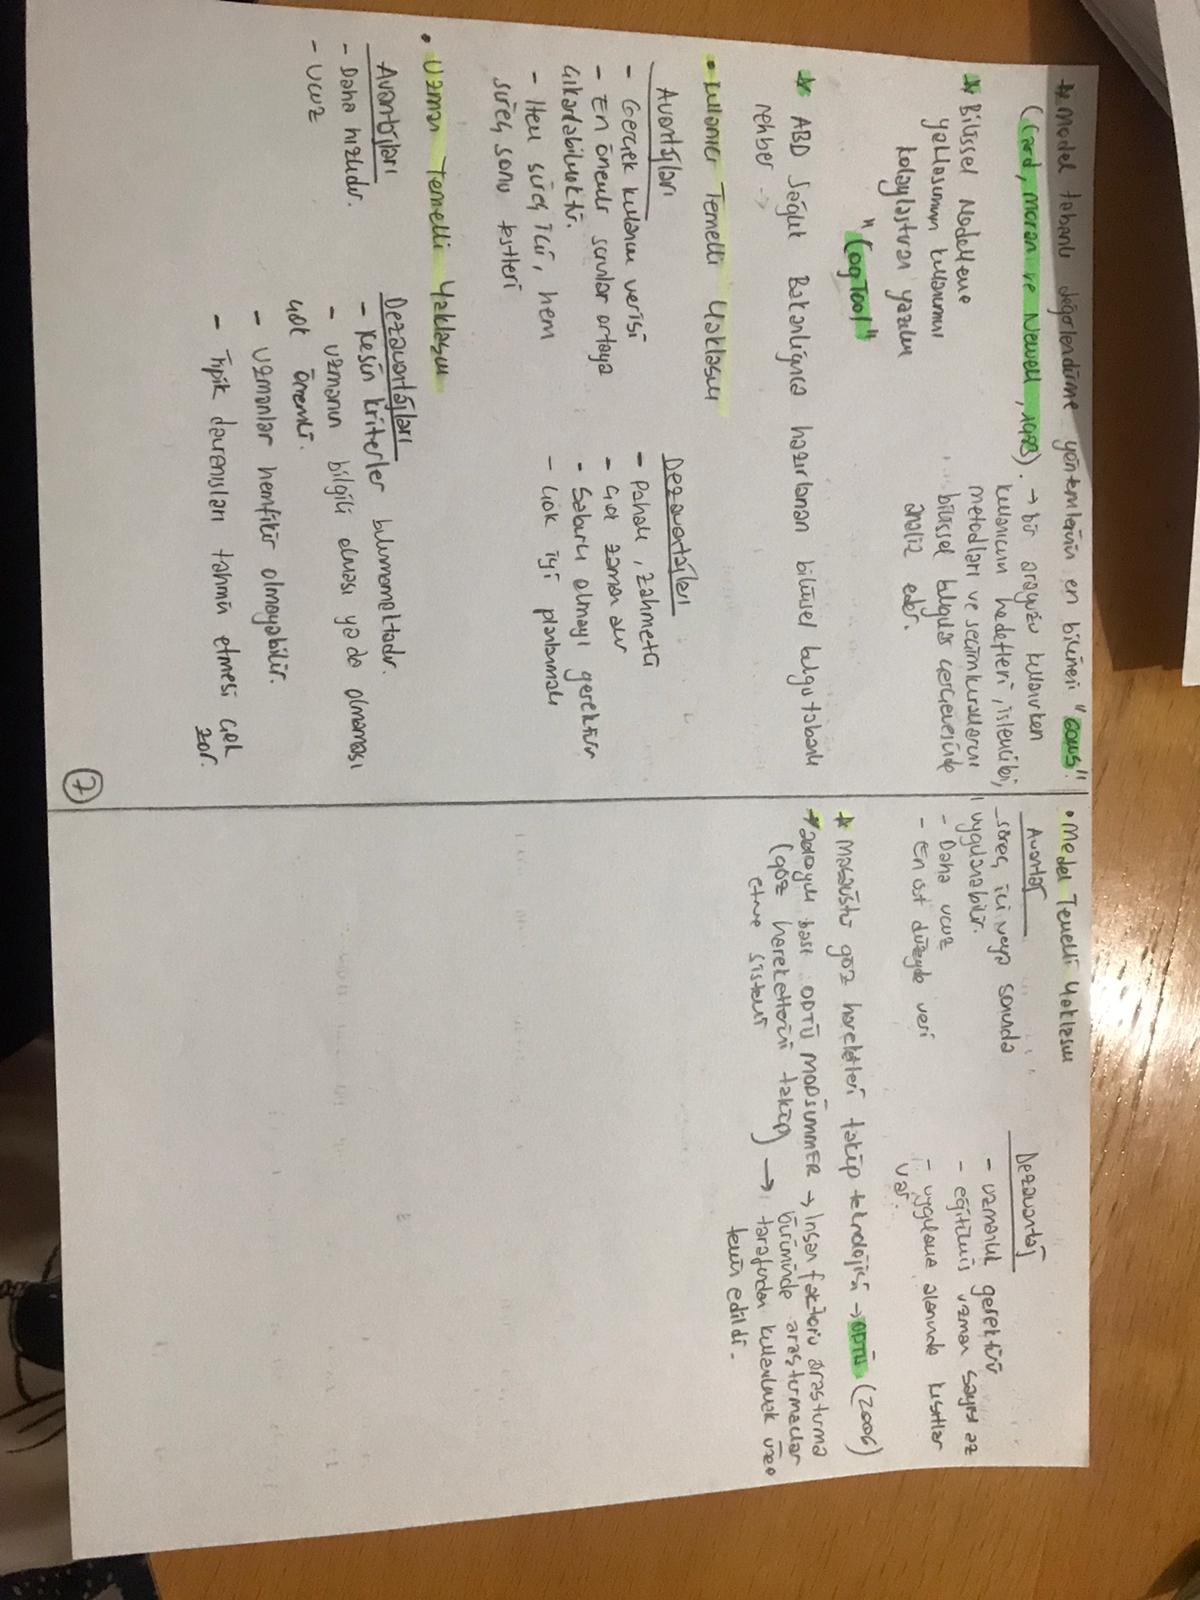 ☆ Model tabanlı değerlendirme yöntemlerinin en bilineni "GOMS".
(Card, Moran ve Newell, 1983). → bir arayüzü kullanırken
kullanıcının hedefleri, işlemcibi,
metodları ve seçim kurallarını
bilişsel bulgular çerçevesinde
analiz eder.
☆ Bilişsel Modelleme
yaklaşımının kullanımını
kolaylaştıran yazılım
"CogTool"
☆ ABD Sağlık Bakanlığınca hazırlanan bilişsel bulgu tabanlı
rehber →
• Kullanıcı Temelli Yaklaşım
Avantajları
- Gerçek kullanıcı verisi
- En önemli sorunlar ortaya
çıkarılabilmektir.
- Hem süreç içi, hem
süreç sonu testleri
Dezavantajları
- Pahalı, zahmetli
- Çok zaman alır
- Sabırlı olmayı gerektirir
- Çok iyi planlanmalı
• Uzman Temelli Yaklaşım
Avantajları
- Daha hızlıdır.
- Ucuz
Dezavantajları
- Kesin kriterler bulunmamaktadır.
- Uzmanın bilgili olması ya da olmaması
çok önemli.
- Uzmanlar hemfikir olmayabilir.
- Tipik davranışları tahmin etmesi çok
zor.
7
• Model Temelli Yaklaşım
Avantaj
- Süreç içi veya sonunda
uygulanabilir.
- Daha ucuz
- En üst düzeyde veri
Dezavantaj
- uzmanlık gerektirir
- eğitilmiş uzman sayısı az
- uygulama alanında kısıtlar
var.
☆ Masaüstü göz hareketleri takip teknolojisi → ODTÜ (2006)
☆ 2010 yılı başı ODTÜ MODSUMMER → İnsan faktörü araştırma
(göz hareketlerini takip
etme sistemi) →
biriminde araştırmacılar
tarafından kullanılmak üzere
temin edildi.